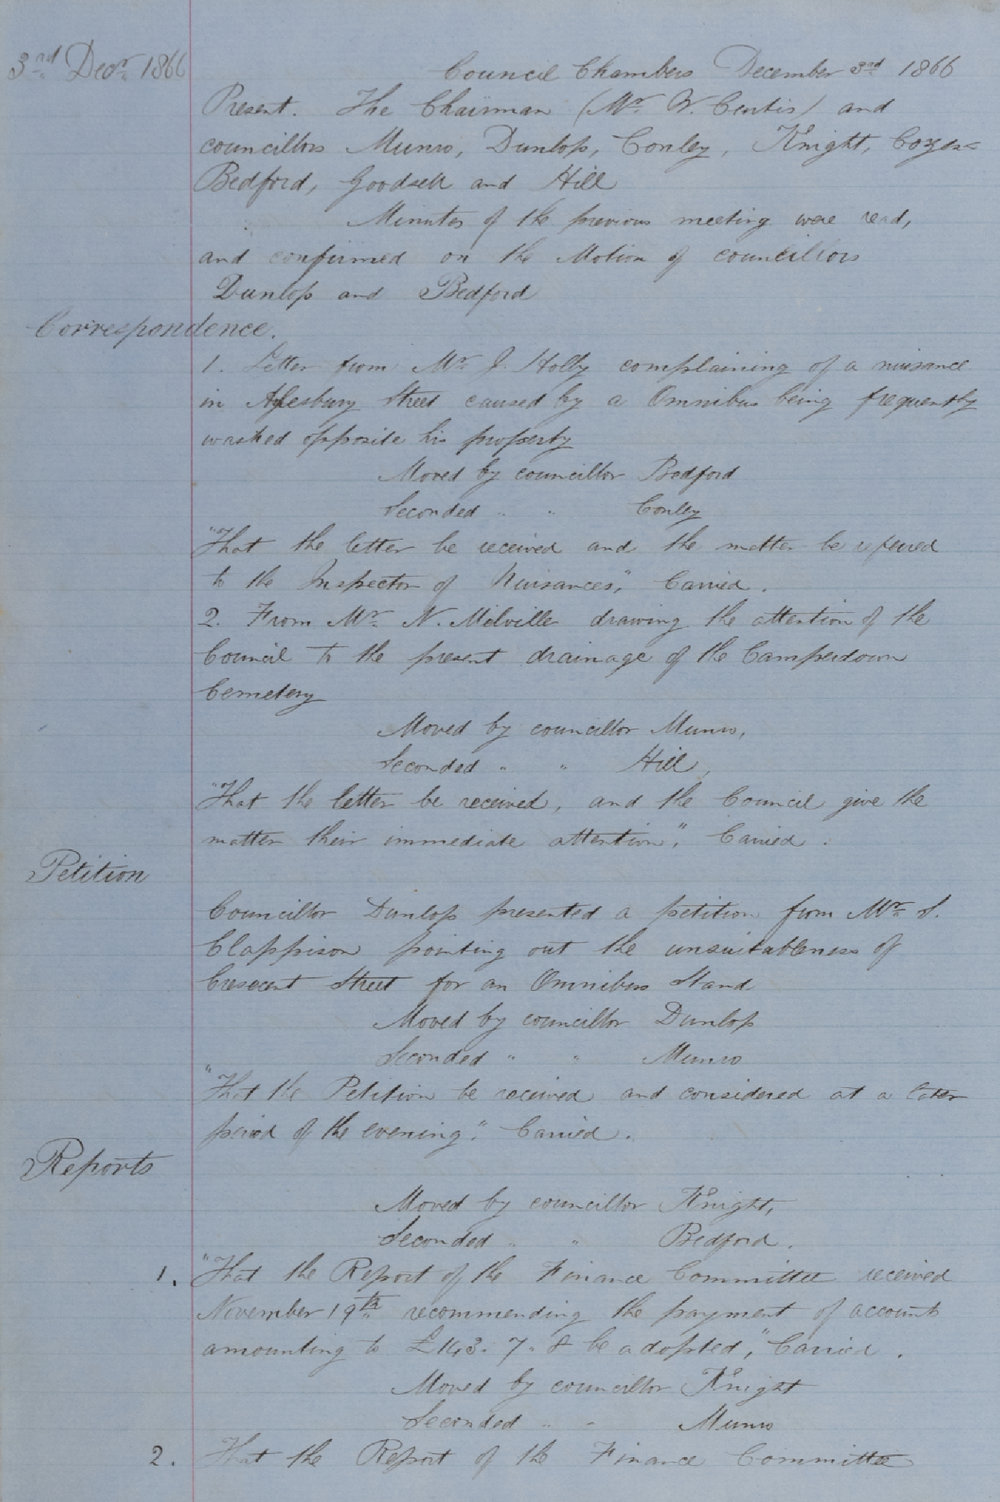 3rd Decr. 1866
Council Chambers December 3rd 1866
Present. The Chairman (Mr. W. Curtis) and
councillors Munro, Dunlop, Conley, Knight, Cozens
Bedford, Goodsell and Hill
Minutes of the previous meeting were read,
and confirmed on the Motion of councillors
Dunlop and Bedford
Correspondence.
1. Letter from Mr. J. Holby complaining of a nuisance
in Aylesbury Street caused by a Omnibus being frequently
washed opposite his property
Moved by councillor Bedford
Seconded " " Conley
"That the letter be received and the matter be referred
to the Inspector of Nuisances," Carried.
2. From Mr. N. Melville drawing the attention of the
Council to the present drainage of the Camperdown
Cemetery
Moved by councillor Munro,
Seconded " " Hill,
"That the letter be received, and the Council give the
matter their immediate attention," Carried.
Petition
Councillor Dunlop presented a petition from Mr. S.
Clappison pointing out the unsuitableness of
Crescent Street for an Omnibus Stand
Moved by councillor Dunlop
Seconded " " Munro
"That the Petition be received and considered at a later
period of the evening." Carried.
Reports
Moved by councillor Knight,
Seconded " " Bedford.
1. "That the Report of the Finance Committee received
November 19th recommending the payment of accounts
amounting to £143. 7. 8 be adopted," Carried.
Moved by councillor Knight
Seconded " " Munro
2. That the Report of the Finance Committee